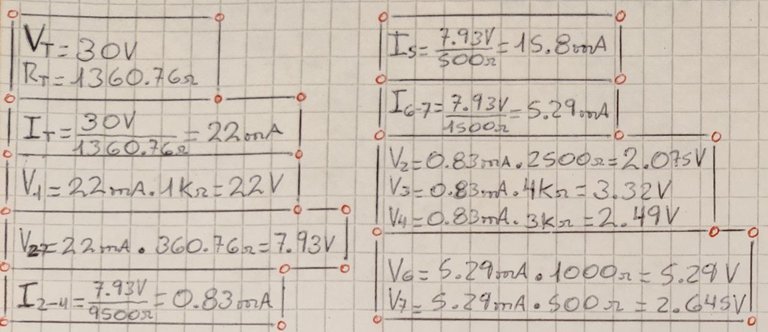 VT = 30V
RT = 1360.76Ω
IT = 30V / 1360.76Ω = 22mA
V1 = 22mA . 1kΩ = 22V
V27 = 22mA . 360.76Ω = 7.93V
I2-4 = 7.93V / 9500Ω = 0.83mA
I5 = 7.93V / 500Ω = 15.8mA
I6-7 = 7.93V / 1500Ω = 5.29mA
V2 = 0.83mA . 2500Ω = 2.075V
V3 = 0.83mA . 4kΩ = 3.32V
V4 = 0.83mA . 3kΩ = 2.49V
V6 = 5.29mA . 1000Ω = 5.29V
V7 = 5.29mA . 500Ω = 2.645V